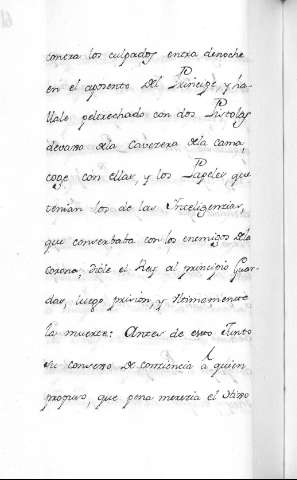 contra los culpados entra denoche
en el aposento del Principe, y ha-
llale peltrechado con dos Pistolas
devaxo dela Cavezera dela cama,
coge con ellas, y los Papeles que
tenian los de las Inteligenzias,
que conserbaba con los enemigos dela
corona; diole el Rey al principio Guar-
das, luego prision, y ultimamente
la muerte: Antes de esto Junto
su consexo de conciencia a quien
propuso, que pena merezia el